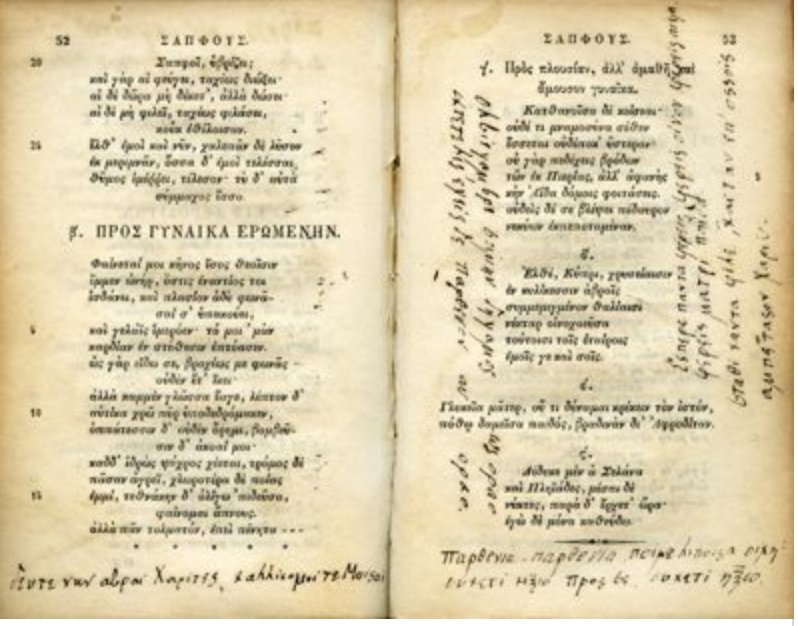 52 ΣΑΠΦΟΥΣ.
20 Σαπφοῖ, ὑβρίζει;
καὶ γὰρ αἰ φεύγει, ταχέως διώξει·
αἰ δὲ δῶρα μὴ δέκετ', ἀλλὰ δώσει·
αἰ δὲ μὴ φιλεῖ, ταχέως φιλάσει,
κοὐκ ἐθέλοισαν.
25 Ἔλθ' ἐμοὶ καὶ νῦν, χαλεπᾶν δὲ λῦσον
ἐκ μεριμνᾶν, ὅσσα δ' ἐμοὶ τελέσσαι
θῦμος ἱμέῤῥει, τέλεσον· τὺ δ' αὐτὰ
σύμμαχος ἔσσο.
β. ΠΡΟΣ ΓΥΝΑΙΚΑ ΕΡΩΜΕΝΗΝ.
Φαίνεταί μοι κῆνος ἴσος θεοῖσιν
ἔμμεν ὠνήρ, ὅστις ἐναντίος τοι
ἱσδάνει, καὶ πλασίον ἁδὺ φωνά-
σαί σ' ὑπακούει,
5 καὶ γελαῖς ἱμερόεν· τό μοι 'μὰν
καρδίαν ἐν στήθεσιν ἐπτόασεν.
ὡς γὰρ εἴδω σε, βροχέως με φωνᾶς
οὐδὲν ἔτ' ἵκει·
ἀλλὰ καμμὲν γλῶσσα ἔαγε, λέπτον δ'
10 αὐτίκα χρῶ πῦρ ὑποδεδρόμακεν,
ὀππάτεσσιν δ' οὐδὲν ὄρημι, βομβεῦ-
σιν δ' ἀκοαί μοι·
καδδ' ἱδρὼς ψύχρος χέεται, τρόμος δὲ
πᾶσαν ἀγρεῖ, χλωροτέρα δὲ ποίας
15 ἐμμί, τεθνάκην δ' ὀλίγω 'πιδεῦσα,
φαίνομαι ἄπνους.
ἀλλὰ πᾶν τολματόν, ἐπεὶ πένητα ---
* * * * *
Δευτε νυν αβραι Χαριτες, καλλικομοι τε Μοισαι
ΣΑΠΦΟΥΣ. 53
γ. Πρὸς πλουσίαν, ἀλλ' ἀμαθῆ καὶ
ἄμουσον γυναῖκα.
Κατθανοῖσα δὲ κείσεαι·
οὐδέ τι μναμοσύνα σέθεν
ἔσσεται οὐδέποκ' ὕστερον·
οὐ γὰρ πεδέχεις βρόδων
5 τῶν ἐκ Πιερίας, ἀλλ' ἀφανὴς
κἠν Ἀΐδα δόμοις φοιτάσεις.
οὐδεὶς δέ σε βλέψει πεδάτερον
νεκύων ἐκπεποταμέναν.
δ.
Ἐλθέ, Κύπρι, χρυσείαισιν
ἐν κυλίκεσσιν ἁβροῖς
συμμεμιγμένον θαλίαισι
νέκταρ οἰνοχοοῦσα
τούτοισι τοῖς ἑταίροις
ἐμοῖς γε καὶ σοῖς.
ε.
Γλυκεῖα μᾶτερ, οὔ τι δύναμαι κρέκειν τὸν ἱστόν,
πόθῳ δαμεῖσα παιδός, βραδινὰν δι' Ἀφροδίταν.
ς.
Δέδυκε μὲν ἁ Σελάνα
καὶ Πληϊάδες, μέσαι δὲ
νύκτες, παρὰ δ' ἔρχετ' ὥρα·
ἐγὼ δὲ μόνα καθεύδω.
Παρθενια παρθενια ποι με λιποισα οιχη·
ουκετι ηξω προς σε, ουκετι ηξω.
Ολβιε γαμβρε
Εσπερε παντα φερεις φερεις οινον
φερεις ματρι παιδα
σταθι καντα φιλε χαριταν επ οσσοις
αμπετασον χαριν.